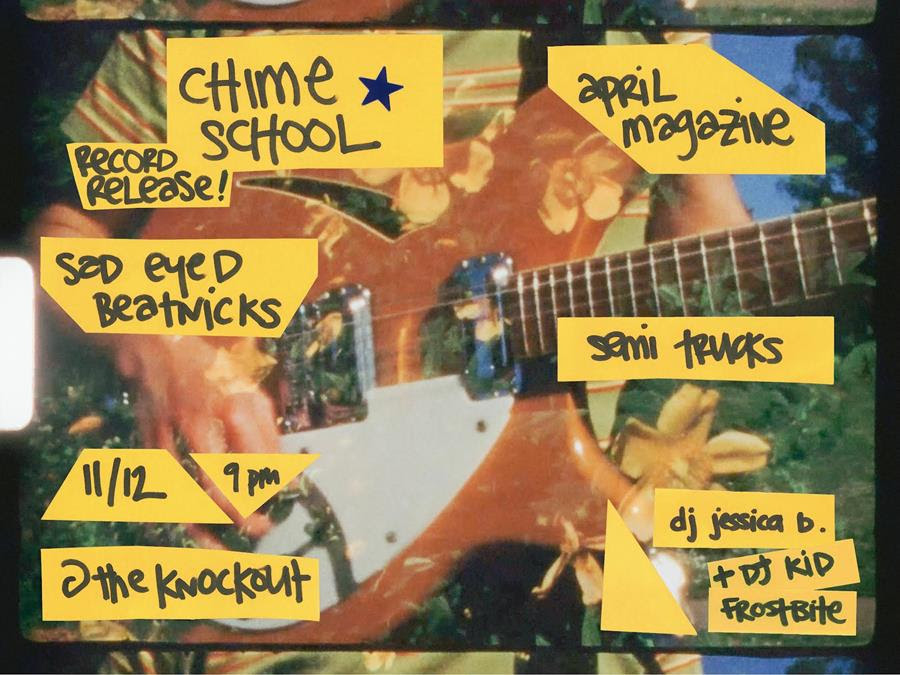 CHIME
SCHOOL
RECORD
RELEASE!
april
magazine
SAD eyeD
BEATNICKS
semi trucks
11/12
9 pm
@ the KNOCKOUT
dj jessica b.
+ DJ KID
FROSTBITE